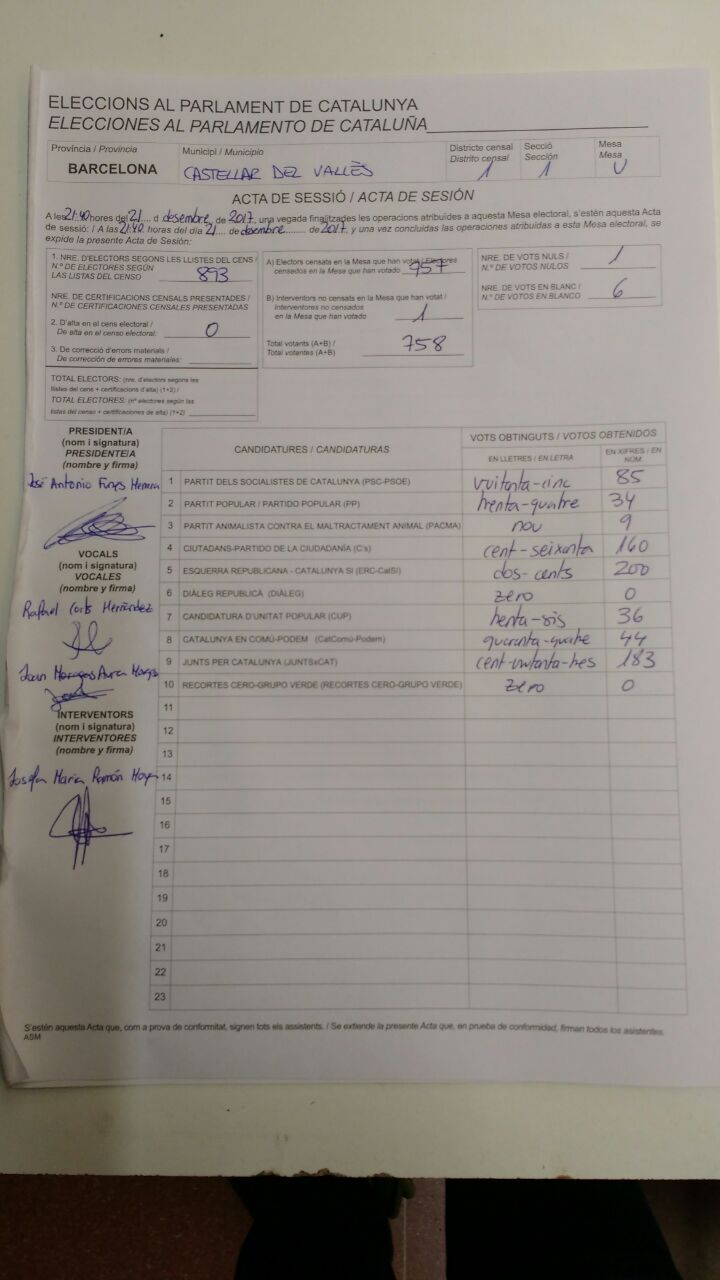 ELECCIONS AL PARLAMENT DE CATALUNYA
ELECCIONES AL PARLAMENTO DE CATALUÑA
Província / Provincia
BARCELONA
Municipi / Municipio
CASTELLAR DEL VALLÈS
Districte censal
Distrito censal
1
Secció
Sección
1
Mesa
Mesa
U
ACTA DE SESSIÓ / ACTA DE SESIÓN
A les 21:40 hores del 21 d desembre de 2017, una vegada finalitzades les operacions atribuïdes a aquesta Mesa electoral, s'estén aquesta Acta
de sessió: / A las 21:40 horas del día 21 de desembre de 2017, y una vez concluidas las operaciones atribuidas a esta Mesa electoral, se
expide la presente Acta de Sesión:
1. NRE. D'ELECTORS SEGONS LES LLISTES DEL CENS /
N.º DE ELECTORES SEGÚN
LAS LISTAS DEL CENSO 893
NRE. DE CERTIFICACIONS CENSALS PRESENTADES /
N.º DE CERTIFICACIONES CENSALES PRESENTADAS
2. D'alta en el cens electoral /
De alta en el censo electoral: 0
3. De correcció d'errors materials /
De corrección de errores materiales:
TOTAL ELECTORS: (nre. d'electors segons les
llistes del cens + certificacions d'alta) (1+2) /
TOTAL ELECTORES: (nº electores según las
listas del censo + certificaciones de alta) (1+2)
A) Electors censats en la Mesa que han votat / Electores
censados en la Mesa que han votado 957
B) Interventors no censats en la Mesa que han votat /
Interventores no censados
en la Mesa que han votado 1
Total votants (A+B) /
Total votantes (A+B) 758
NRE. DE VOTS NULS /
N.º DE VOTOS NULOS 1
NRE. DE VOTS EN BLANC /
N.º DE VOTOS EN BLANCO 6
PRESIDENT/A
(nom i signatura)
PRESIDENTE/A
(nombre y firma)
José Antonio Funes Herrera
VOCALS
(nom i signatura)
VOCALES
(nombre y firma)
Rafael Corts Hernández
Joan
INTERVENTORS
(nom i signatura)
INTERVENTORES
(nombre y firma)
Josefa Maria Ramón Moya
CANDIDATURES / CANDIDATURAS
VOTS OBTINGUTS / VOTOS OBTENIDOS
EN LLETRES / EN LETRA
EN XIFRES / EN NÚM.
1 PARTIT DELS SOCIALISTES DE CATALUNYA (PSC-PSOE) vuitanta-cinc 85
2 PARTIT POPULAR / PARTIDO POPULAR (PP) trenta-quatre 34
3 PARTIT ANIMALISTA CONTRA EL MALTRACTAMENT ANIMAL (PACMA) nou 9
4 CIUTADANS-PARTIDO DE LA CIUDADANÍA (C's) cent-seixanta 160
5 ESQUERRA REPUBLICANA - CATALUNYA SÍ (ERC-CatSÍ) dos-cents 200
6 DIÀLEG REPUBLICÀ (DIÀLEG) zero 0
7 CANDIDATURA D'UNITAT POPULAR (CUP) trenta-sis 36
8 CATALUNYA EN COMÚ-PODEM (CatComú-Podem) quaranta-quatre 44
9 JUNTS PER CATALUNYA (JUNTSxCAT) cent-vuitanta-tres 183
10 RECORTES CERO-GRUPO VERDE (RECORTES CERO-GRUPO VERDE) zero 0
11
12
13
14
15
16
17
18
19
20
21
22
23
S'estén aquesta Acta que, com a prova de conformitat, signen tots els assistents. / Se extiende la presente Acta que, en prueba de conformidad, firman todos los asistentes.
ASM